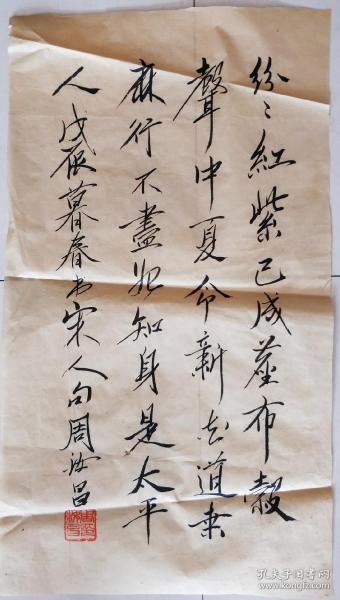 紛〻紅紫已成塵布穀
聲中夏令新夾道桒
麻行不盡始知身是太平
人戊辰暮春书宋人句周汝昌
孔夫子旧书网